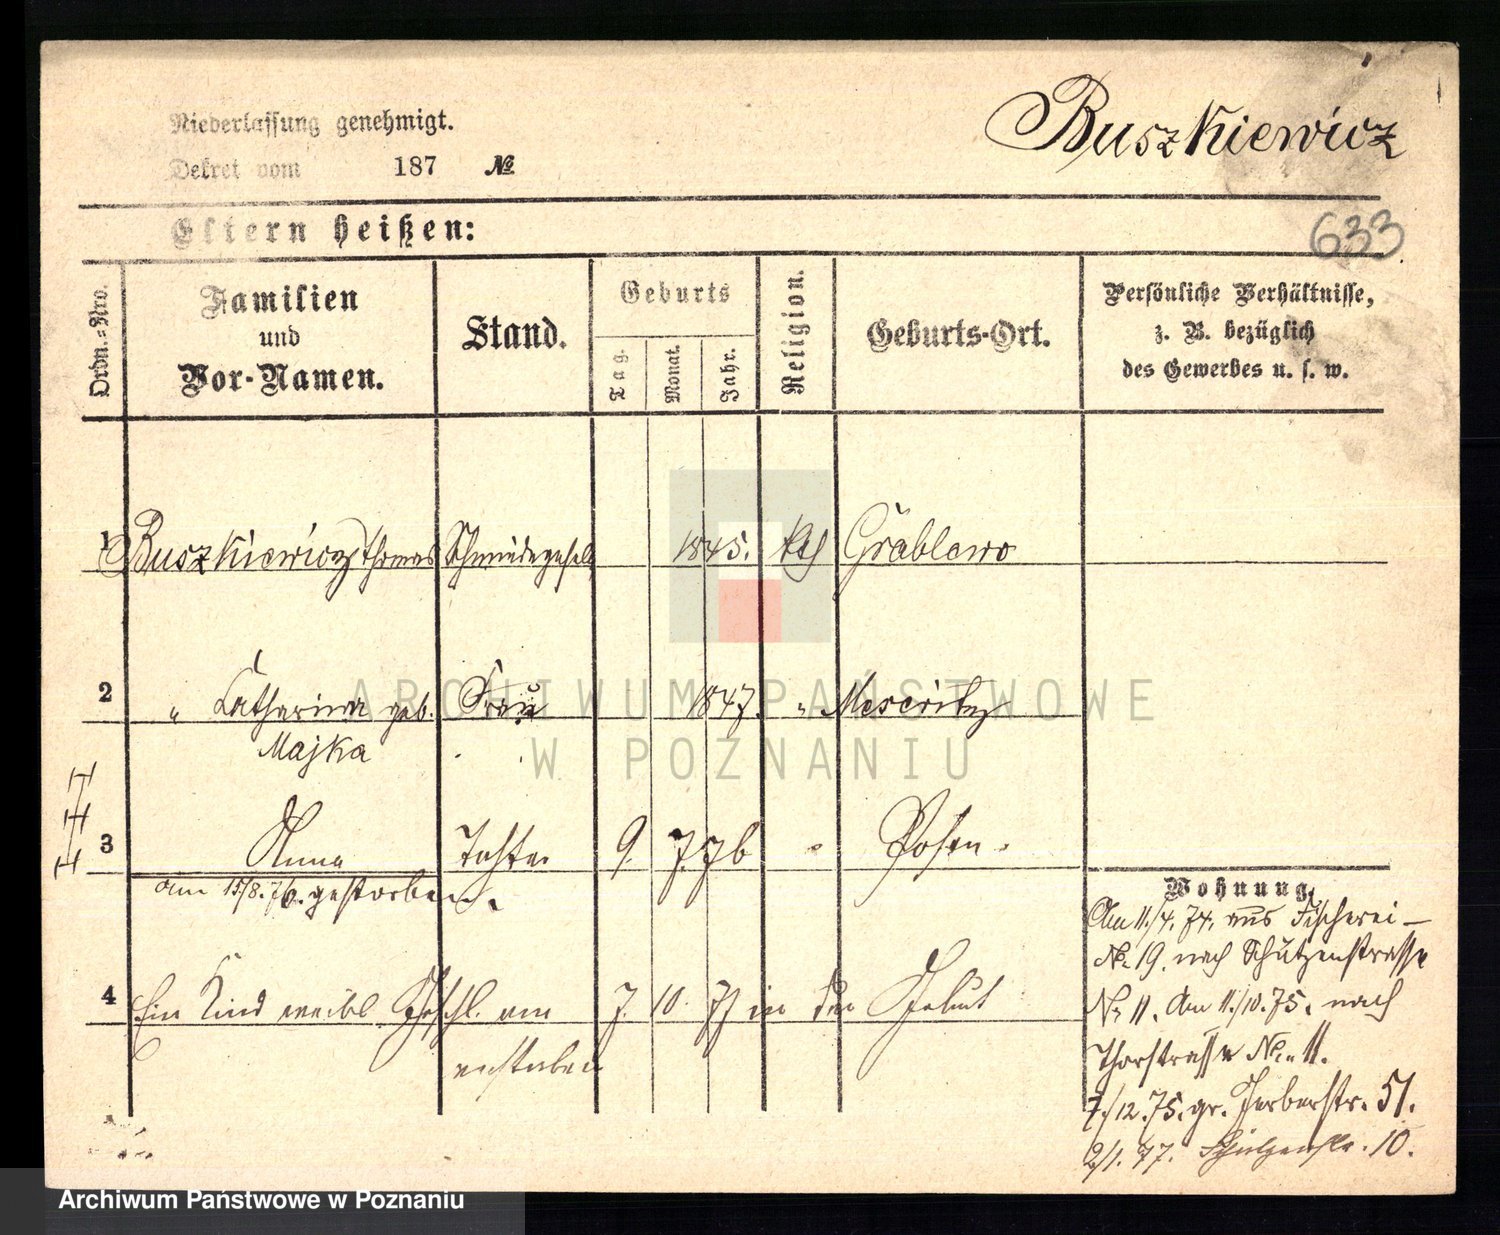 Buszkiewicz
Niederlassung genehmigt.
Dekret vom 187 №
633
Eltern heißen:
Ordn.-Nro.
Familien
und
Vor-Namen.
Stand.
Geburts
Tag.
Monat.
Jahr.
Religion.
Geburts-Ort.
Persönliche Verhältnisse,
z. B. bezüglich
des Gewerbes u. s. w.
1 Buszkiewicz Thomas Schmiedegesell 1845. kth Grablewo
2 " Catharina geb. Frau 1847. " Meseritz
Majka
3 Anna Tochter 9. 7. 76 " Posen.
am 15/8. 76. gestorben.
4 Ein Kind weibl. Geschl. am 7. 10. 77 in der Geburt
verstorben
Wohnung
Am 11./4. 74. aus Fischerei –
No. 19. nach Schützenstrasse
No 11. Am 11./10. 75. nach
Thorstrasse No. 11.
7./12. 75. gr. Gerberstr. 51.
2/1. 77. Schützenstr. 10.
ARCHIWUM PAŃSTWOWE
W POZNANIU
Archiwum Państwowe w Poznaniu